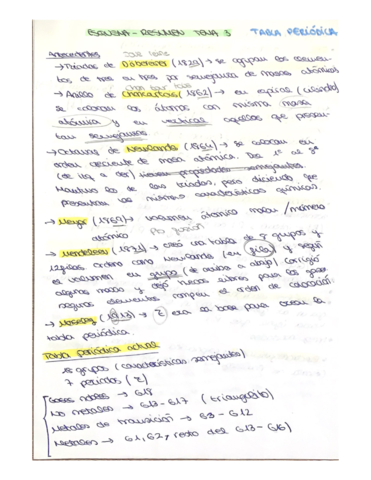 ESQUEMA - RESUMEN TEMA 3 TABLA PERIÓDICA
Antecedentes
→ Triadas de Döbereiner (1820) → se agrupan los elemen-
tos de tres en tres por semejanza de masas atómicas
→ Anillo de Chancourtois (1862) → en espiral
se colocaban los átomos con misma masa
atómica y en verticales aquellos que presen-
tan semejanzas
→ Octavas de Newlands (1864) → se colocan en
orden creciente de masa atómica. De 1º al 8º
propiedades semejantes.
Mantuvo las triadas, pero diciendo que
presentan las mismas características químicas.
→ Meyer (1869) → volumen atómico molar / número
atómico
→ Mendeleiev (1871) → creó una tabla de 8 grupos y
12 filas orden como Newlands (en filas) y según
el volumen en grupo (de arriba a abajo) corrigió
algunas masas y dejó huecos libres para los gases
algunos elementos rompen el orden de colocación
→ Moseley (1913) → Z era la base para crear la
tabla periódica.
Tabla periódica actual
18 grupos (características semejantes)
7 periodos (Z)
Gases nobles → G18
No metales → G13 - G17 (triangulito)
Metales de transición → G3 - G12
Metales → G1, G2, y resto del G13 - G16)